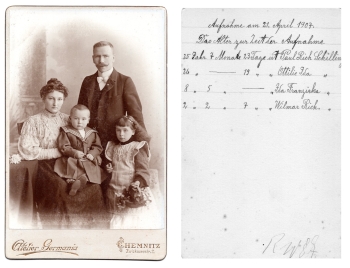 Atelier Germania
CHEMNITZ
Aufnahme am 21. April 1907.
Das Alter zur Zeit der Aufnahme
25 Jahr 7 Monate 23 Tage ist Paul Rich. Schilling
24 " — 19 " Ottilie Ida
8 " 5 " — Ida Franziska
2 " 2 " 7 " Hilmar Rich.